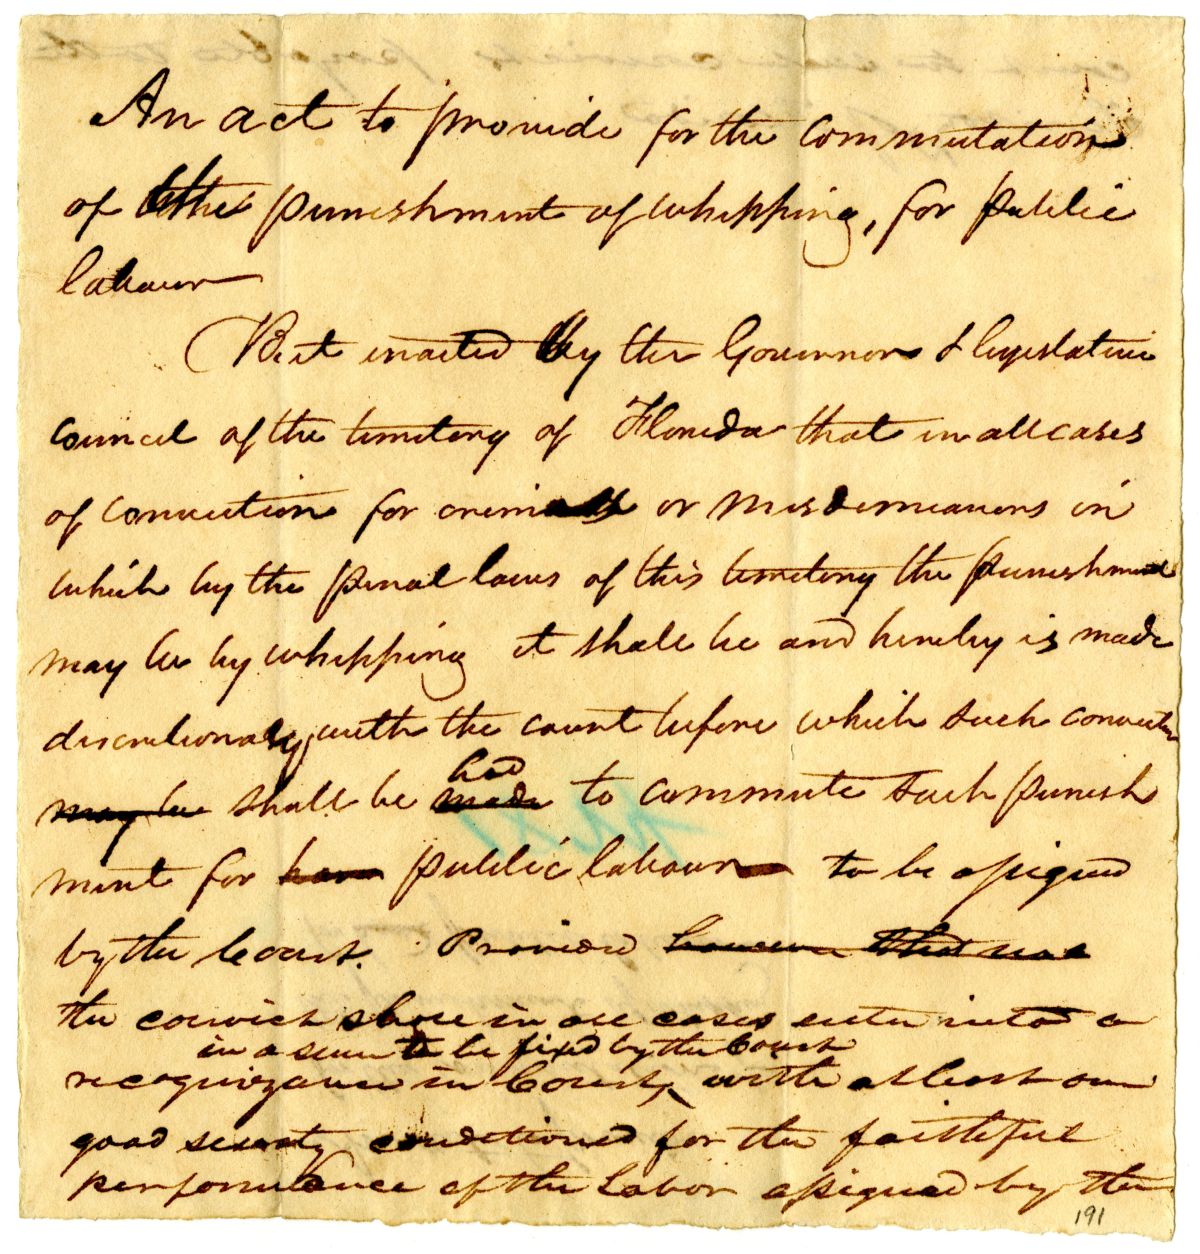 An act to provide for the commutation
of the punishment of whipping, for public
labour
Be it enacted by the Governor & legislative
council of the territory of Florida that in all cases
of conviction for crimes or misdemeanors in
which by the penal laws of this territory the punishment
may be by whipping it shall be and hereby is made
discretionary with the court before which such conviction
may be shall be had made to commute such punish
ment for public labour to be assigned
by the Court. Provided however that
the convict shall in all cases enter into a
in a sum to be fixed by the Court
recognizance in Court, with at least one
good security conditioned for the faithful
performance of the Labor assigned by the
191